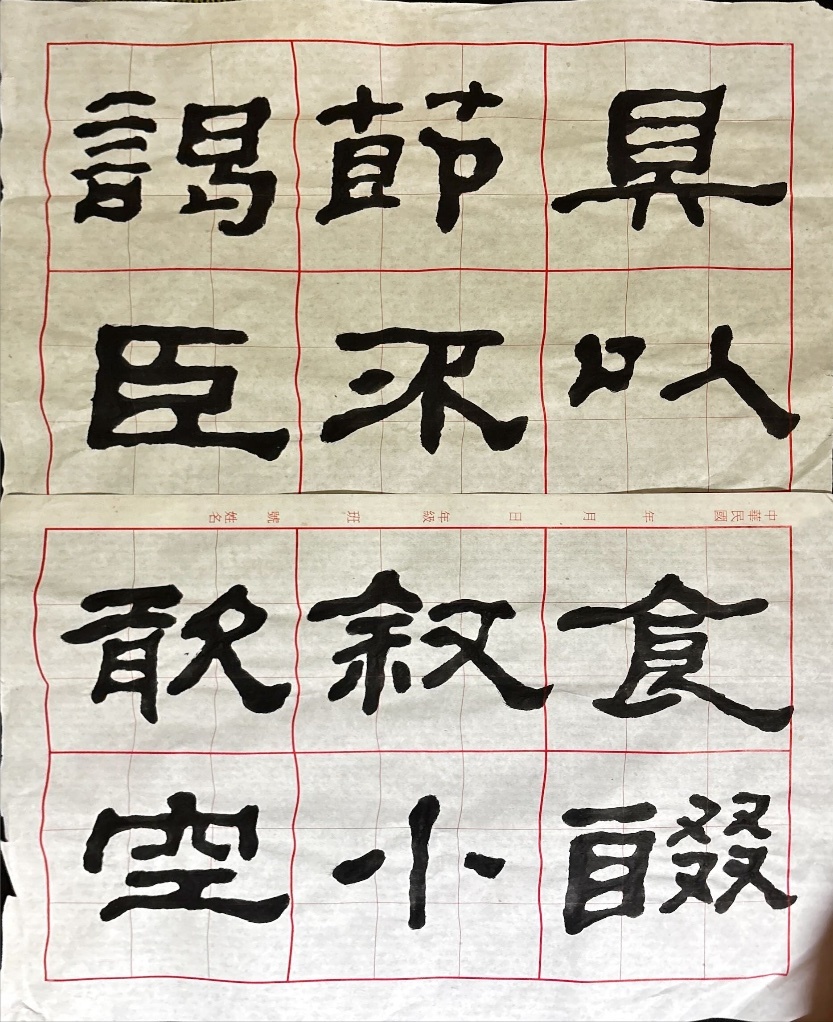 食醊具以
敘小節不
敢空謁臣
中華民國 年 月 日 年級 班 號 姓名